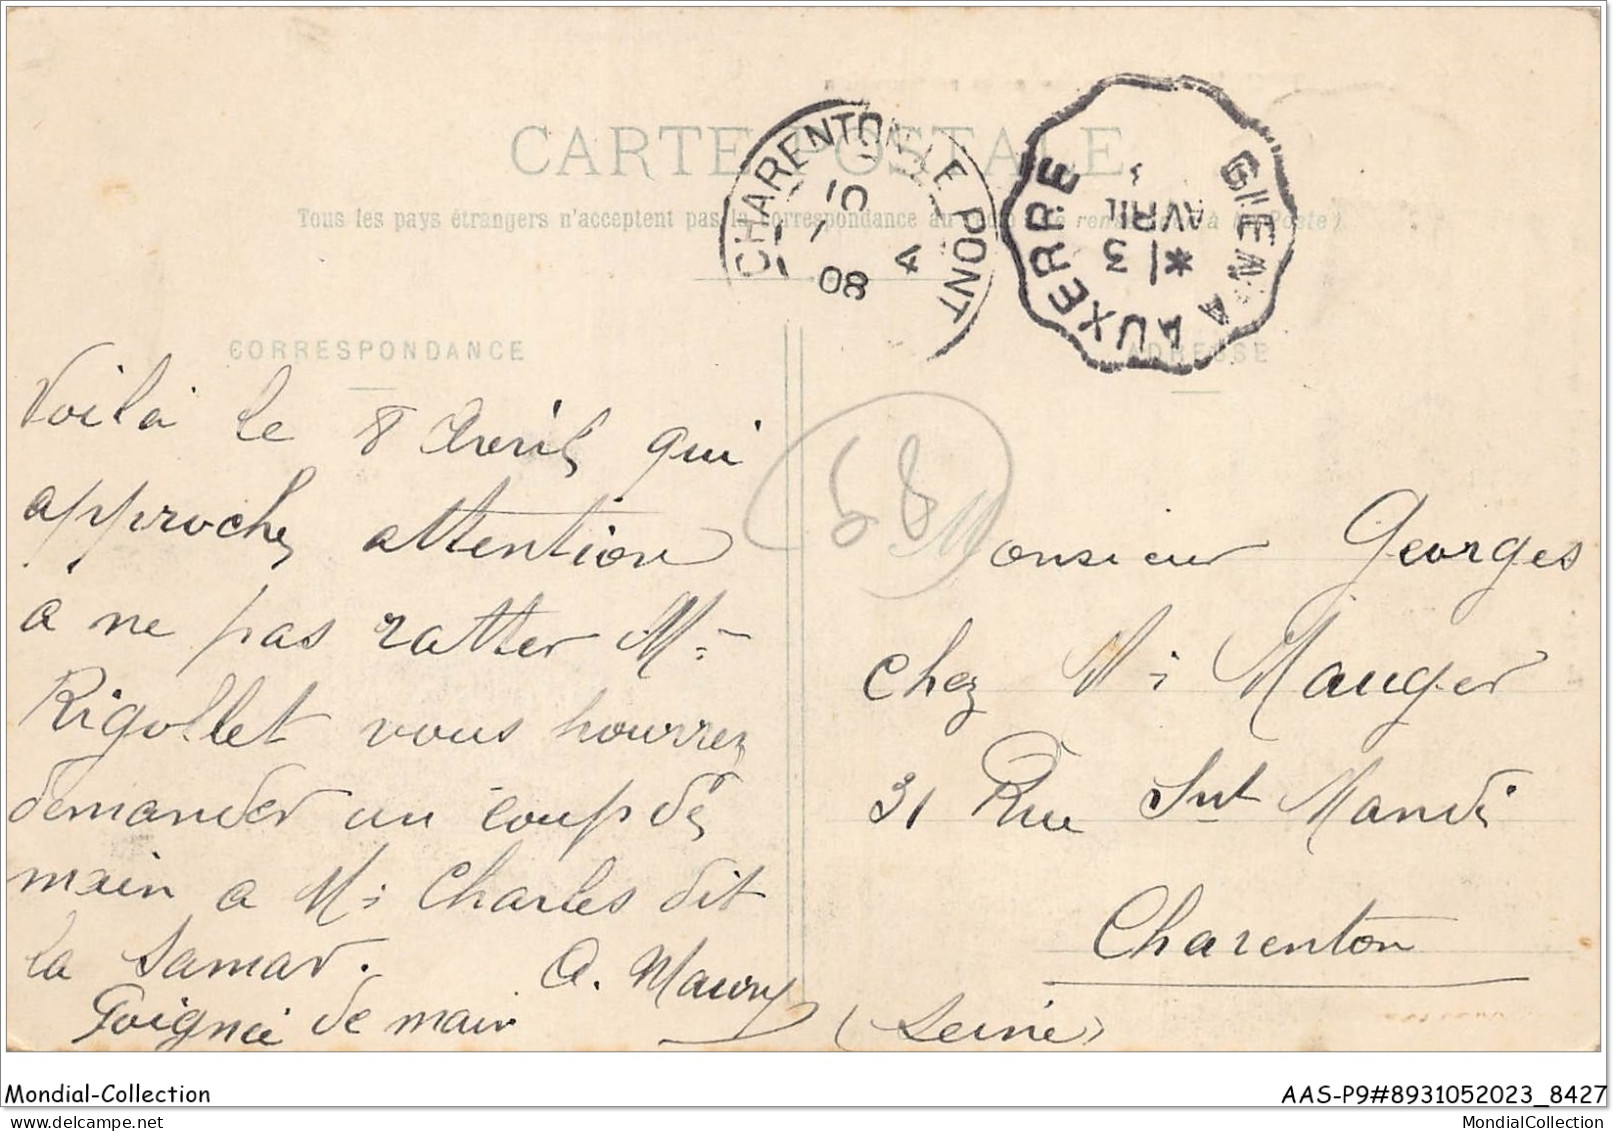 CARTE POSTALE
Tous les pays étrangers n'acceptent pas la correspondance au
CHARENTON LE PONT
08
GIEN A AUXERRE
*13
AVRIL
CORRESPONDANCE
ADRESSE
Voilà le 8 Avril qui
approche, attention
a ne pas ratter Mr
Rigollet vous pourrez
demander un coup de
main a Mr Charles dit
la Samar.
A. Maury
Poignée de main
Monsieur Georges
chez Mr Mauger
31 Rue Snt Mandé
Charenton
(Seine)
68
Mondial-Collection
AAS-P9#8931052023_8427
www.mondialcollection.net
MondialCollection